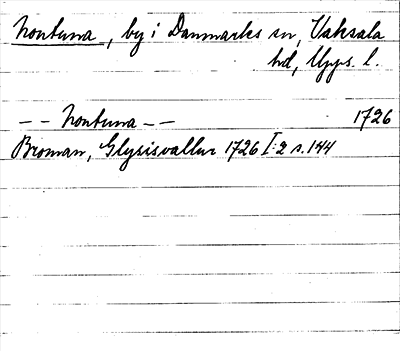 Norrtuna, by i Danmarks sn, Vaksala
hd, Upps. l.
-- Norrtuna -- 1726
Broman, Glysisvallur 1726 I:2 s. 144